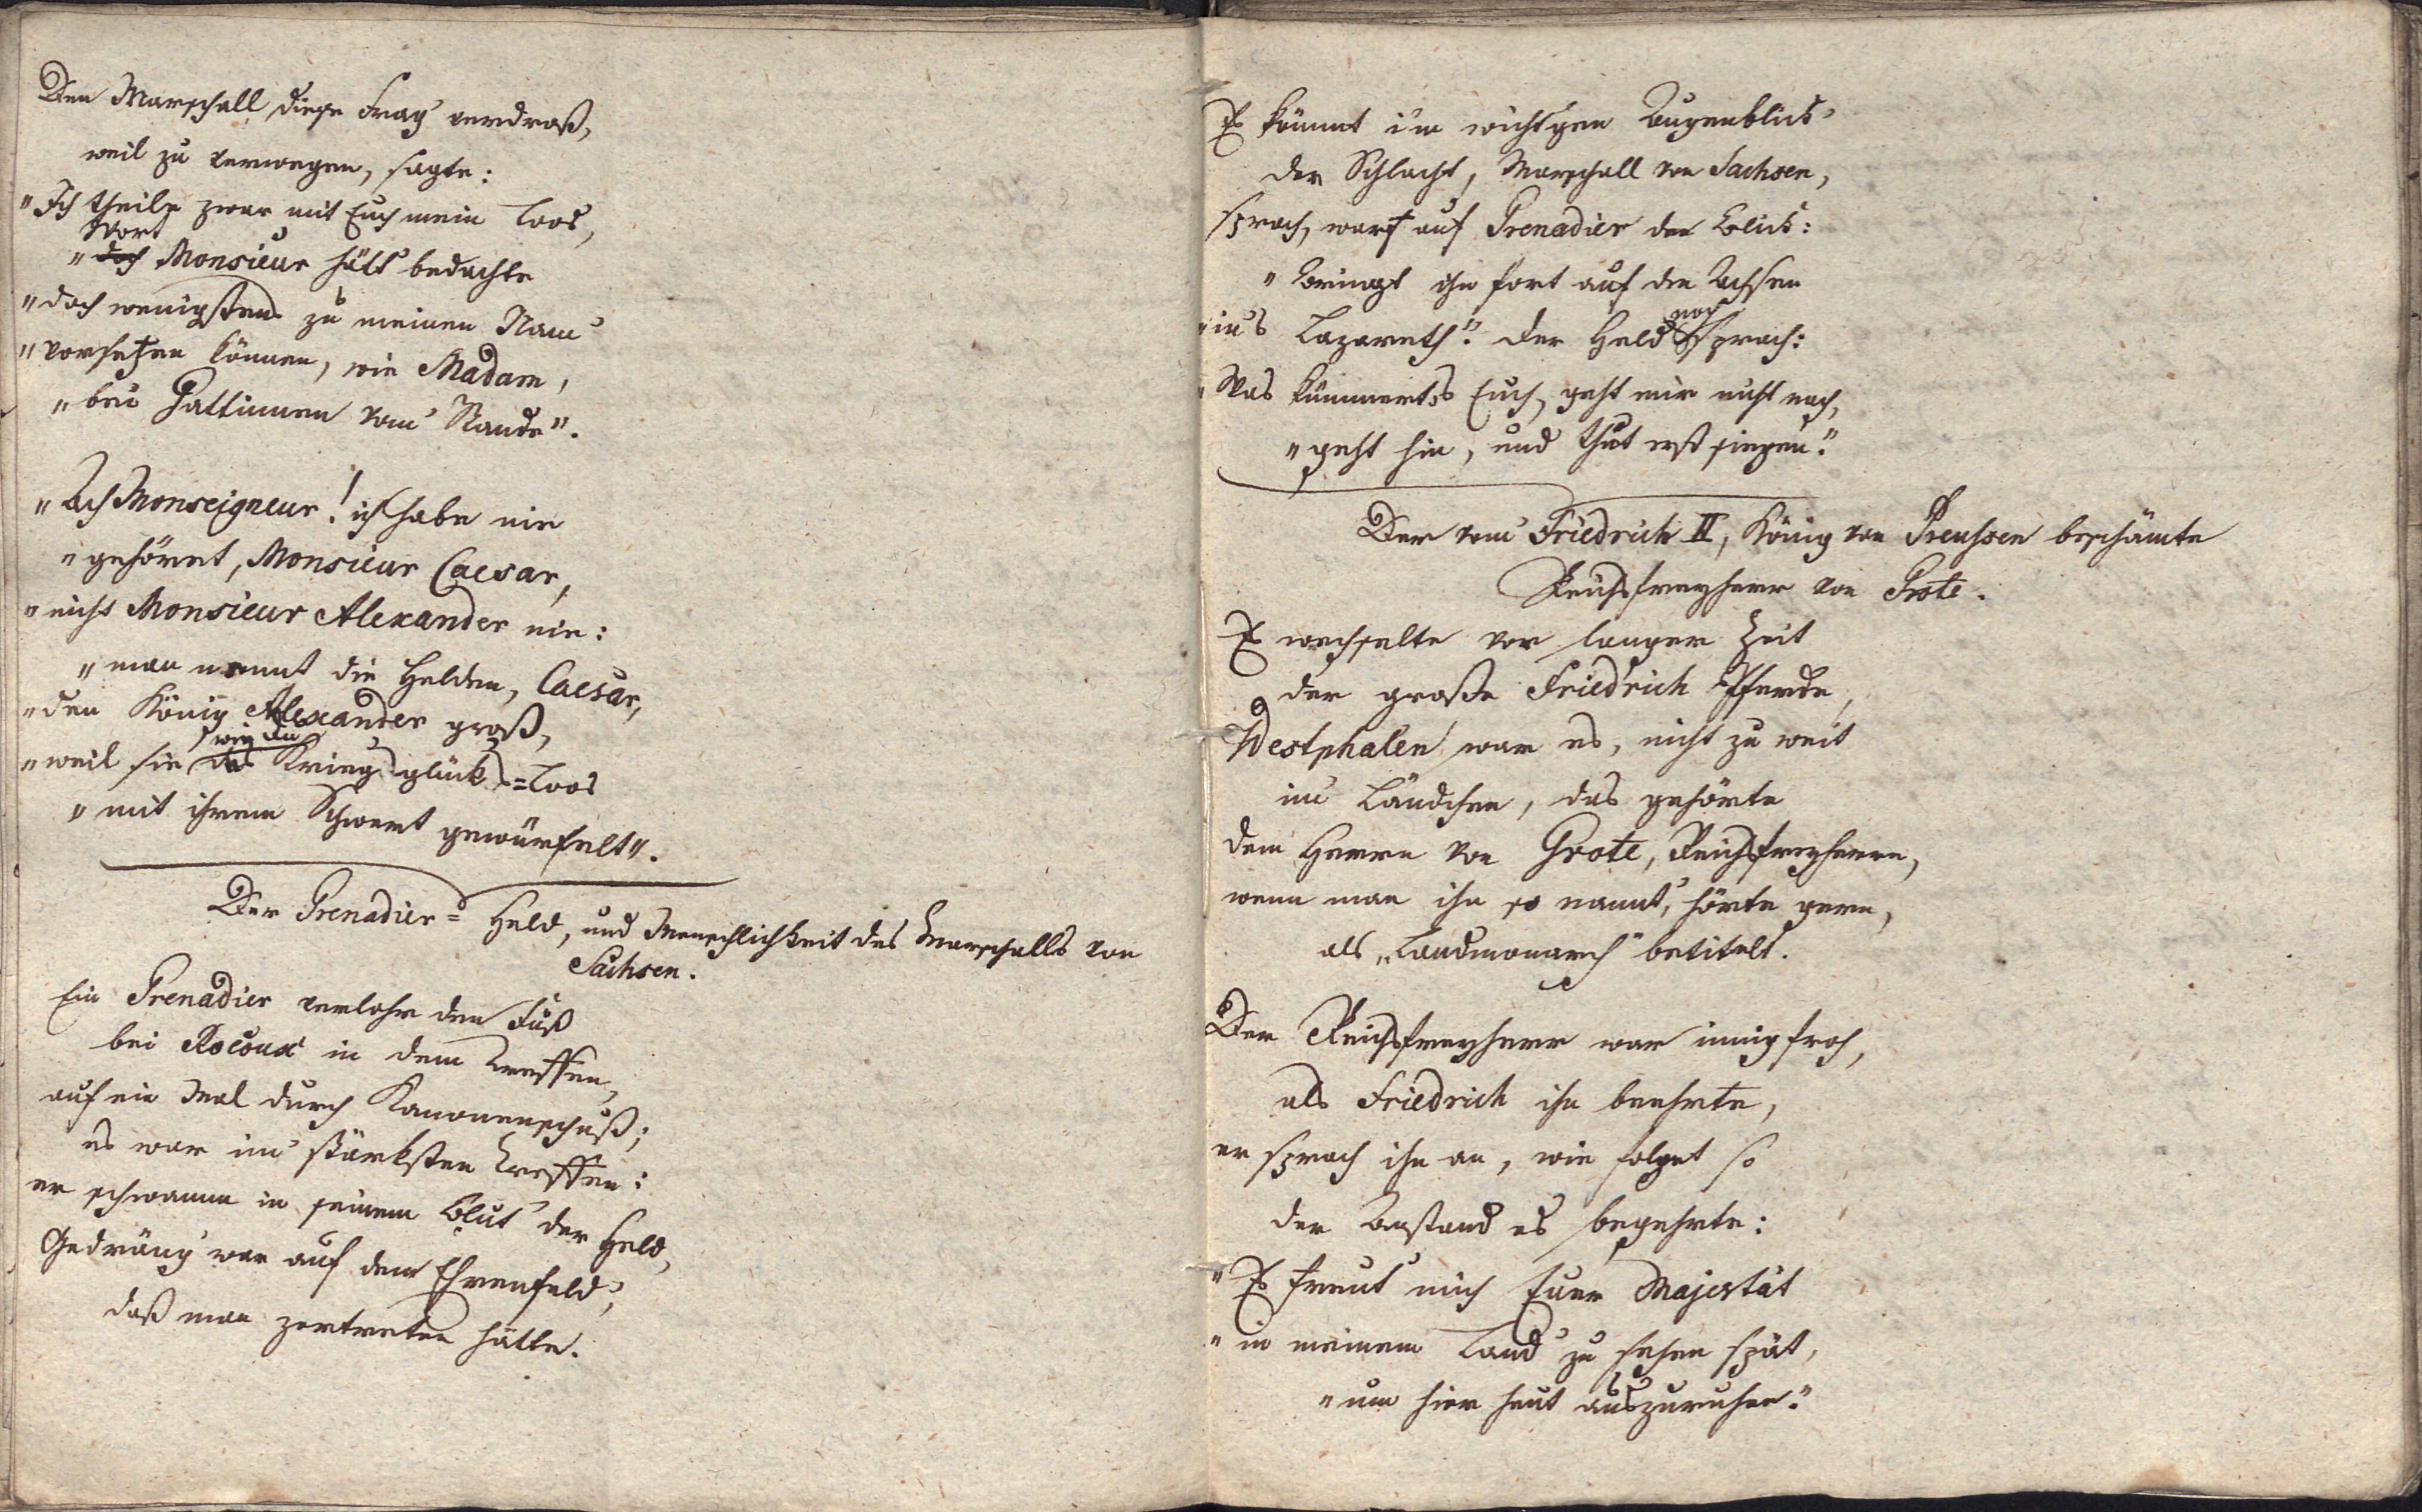 Den Marschall diese Frag' verdroß,
weil zu verwegen, sagte:
"Ich theile zwar mit Euch mein Loos,
Wort
"doch Monsieur hätt' bedachte
"doch wenigstens zu meinem Nam'
"vorsetzen können, wie Madam,
"bei Gattinnen vom Stande".
"Ach Monseigneur! ich habe nie
"gehöret, Monsieur Caesar,
"nicht Monsieur Alexander nie:
"man nennt die Helden, Caesar,
"den König Alexander groß,
wie du
"weil sie des Kriegsglücks=Loos
"mit ihrem Schwert gewürfelt".
Der Grenadier=Held, und Menschlichkeit des Marschalls von
Sachsen.
Ein Grenadier verlohr den Fuß
bei Rocoux in dem Treffen,
auf ein Mal durch Kanonenschuß;
es war im stärksten Treffen:
er schwamm in seinem Blut' der Held,
Gedräng' war auf dem Ehrenfeld',
daß man zertreten hätte.
Es kömmt im wicht'gen Augenblick'
der Schlacht, Marschall von Sachsen,
sprach, warf auf Grenadier den Blick:
"Bringt ihn fort auf den Achsen
noch
"in's Lazareth". Der Held sprach:
"Was kümmert's Euch, geht mir nicht nach,
"geht hin, und thut erst siegen".
Der vom Friedrich II, König von Preussen beschämte
Reichsfreyherr von Grote.
Es wechselte vor langer Zeit
der große Friedrich Pferde,
Westphalen war es, nicht zu weit
im Ländchen, das gehörte
dem Herrn von Grote, Reichsfreyherrn,
wenn man ihn so nannt', hörte gern,
als "Landmonarch" betitelt.
Der Reichsfreyherr war innig froh,
als Friedrich ihn beehrte,
er sprach ihn an, wie folget so
der Anstand es begehrte:
"Es freut mich Euer Majestät
"in meinem Land' zu sehen spät,
"um hier heut auszuruhen".